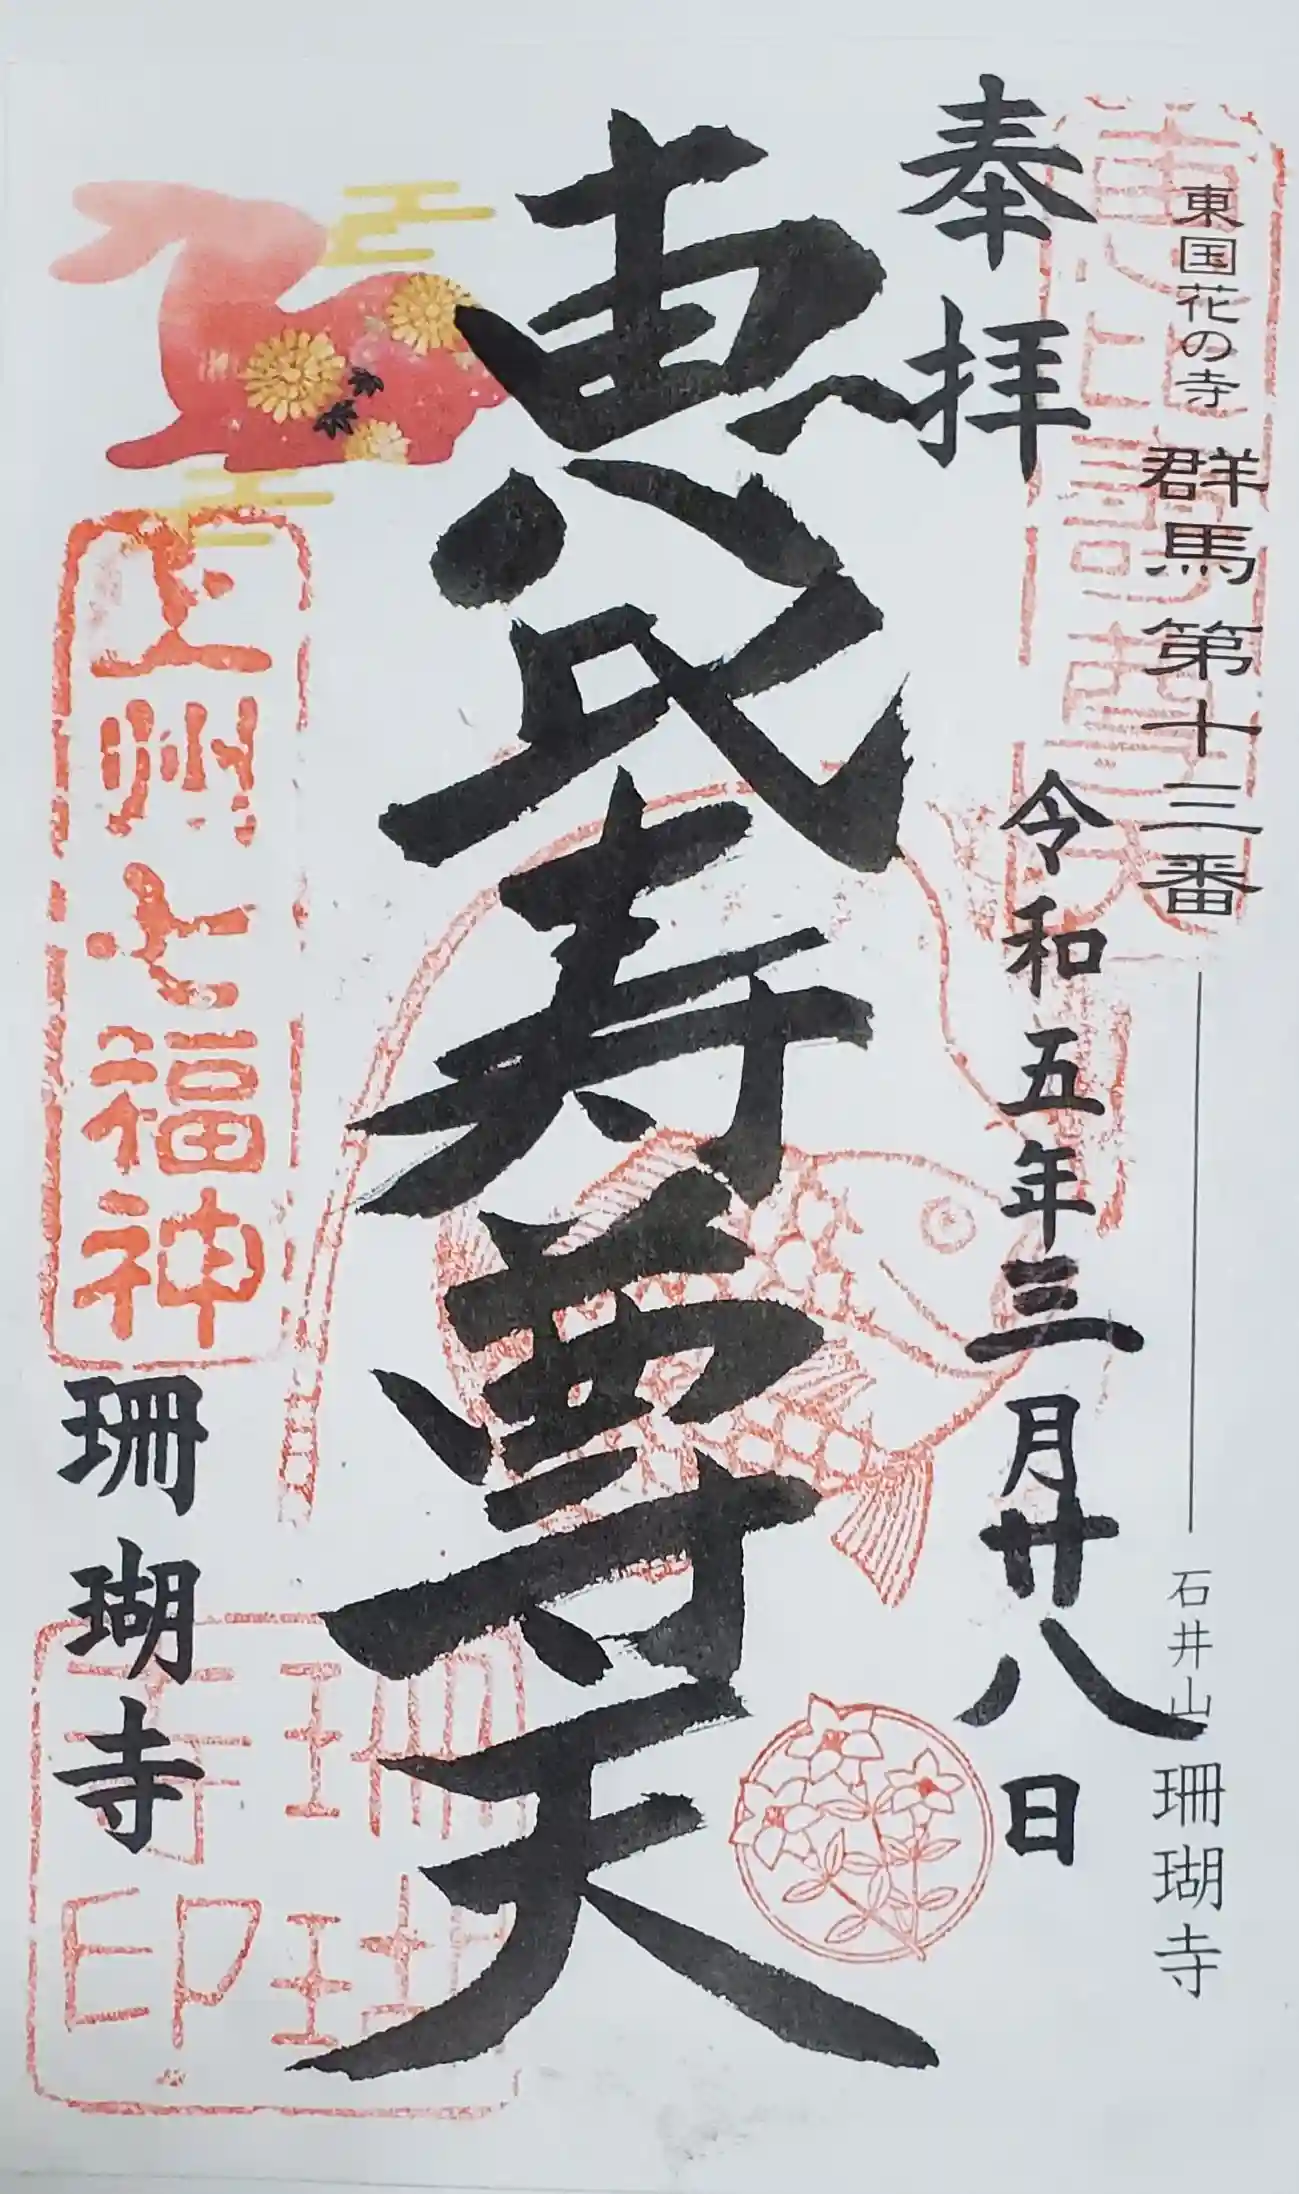 東国花の寺 群馬第十三番 石井山 珊瑚寺
奉拝 令和五年三月廿八日
恵比寿尊天
上州七福神
珊瑚寺
珊瑚寺印